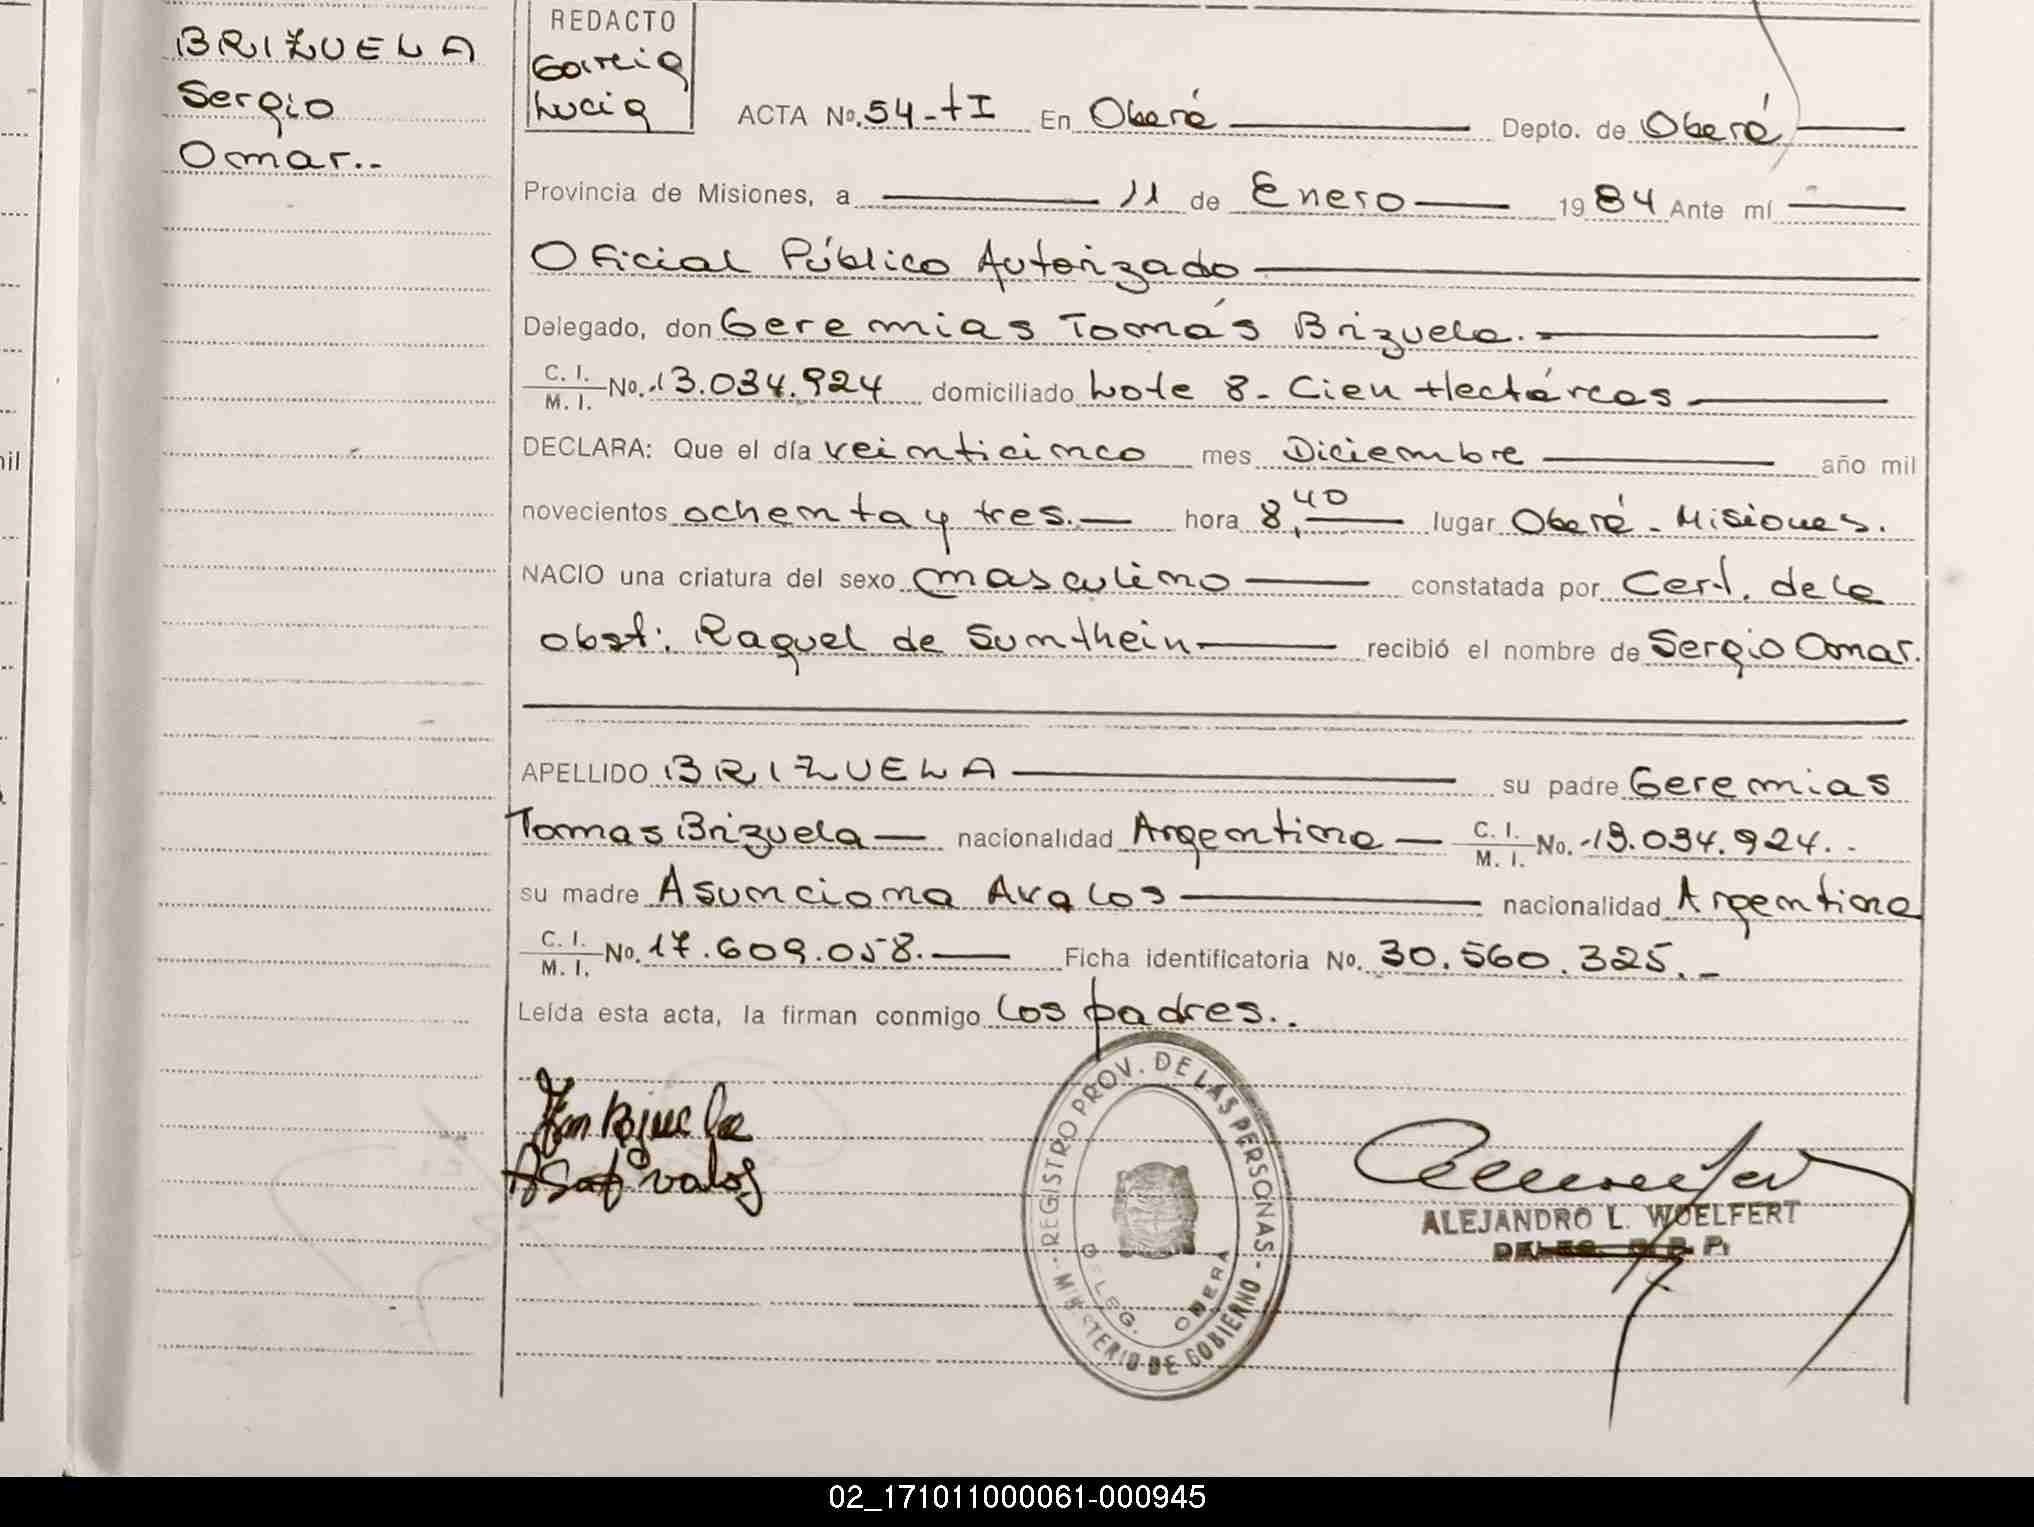 BRIZUELA
Sergio
Omar..
REDACTO
Garcia
Lucia
ACTA No. 54-tI En Oberá Depto. de Oberá
Provincia de Misiones, a 11 de Enero 1984 Ante mí
Oficial Público Autorizado
Delegado, don Geremias Tomás Brizuela.
C. I. / M. I. No. 13.034.924 domiciliado Lote 8 - Cien Hectáreas
DECLARA: Que el día veinticinco mes Diciembre año mil
novecientos ochenta y tres. hora 8,40 lugar Oberá - Misiones.
NACIO una criatura del sexo masculino constatada por Cert. de la
obst: Raquel de Sumthein recibió el nombre de Sergio Omar.
APELLIDO BRIZUELA su padre Geremias
Tomas Brizuela nacionalidad Argentina C. I. / M. I. No. 13.034.924.
su madre Asunciona Avalos nacionalidad Argentina
C. I. / M. I. No. 17.609.058. Ficha identificatoria No. 30.560.325.
Leída esta acta, la firman conmigo los padres..
REGISTRO PROV. DE LAS PERSONAS
DELEG. OBERA
MINISTERIO DE GOBIERNO
ALEJANDRO L. WOELFERT
DELEG. R. P. P.
02_171011000061-000945